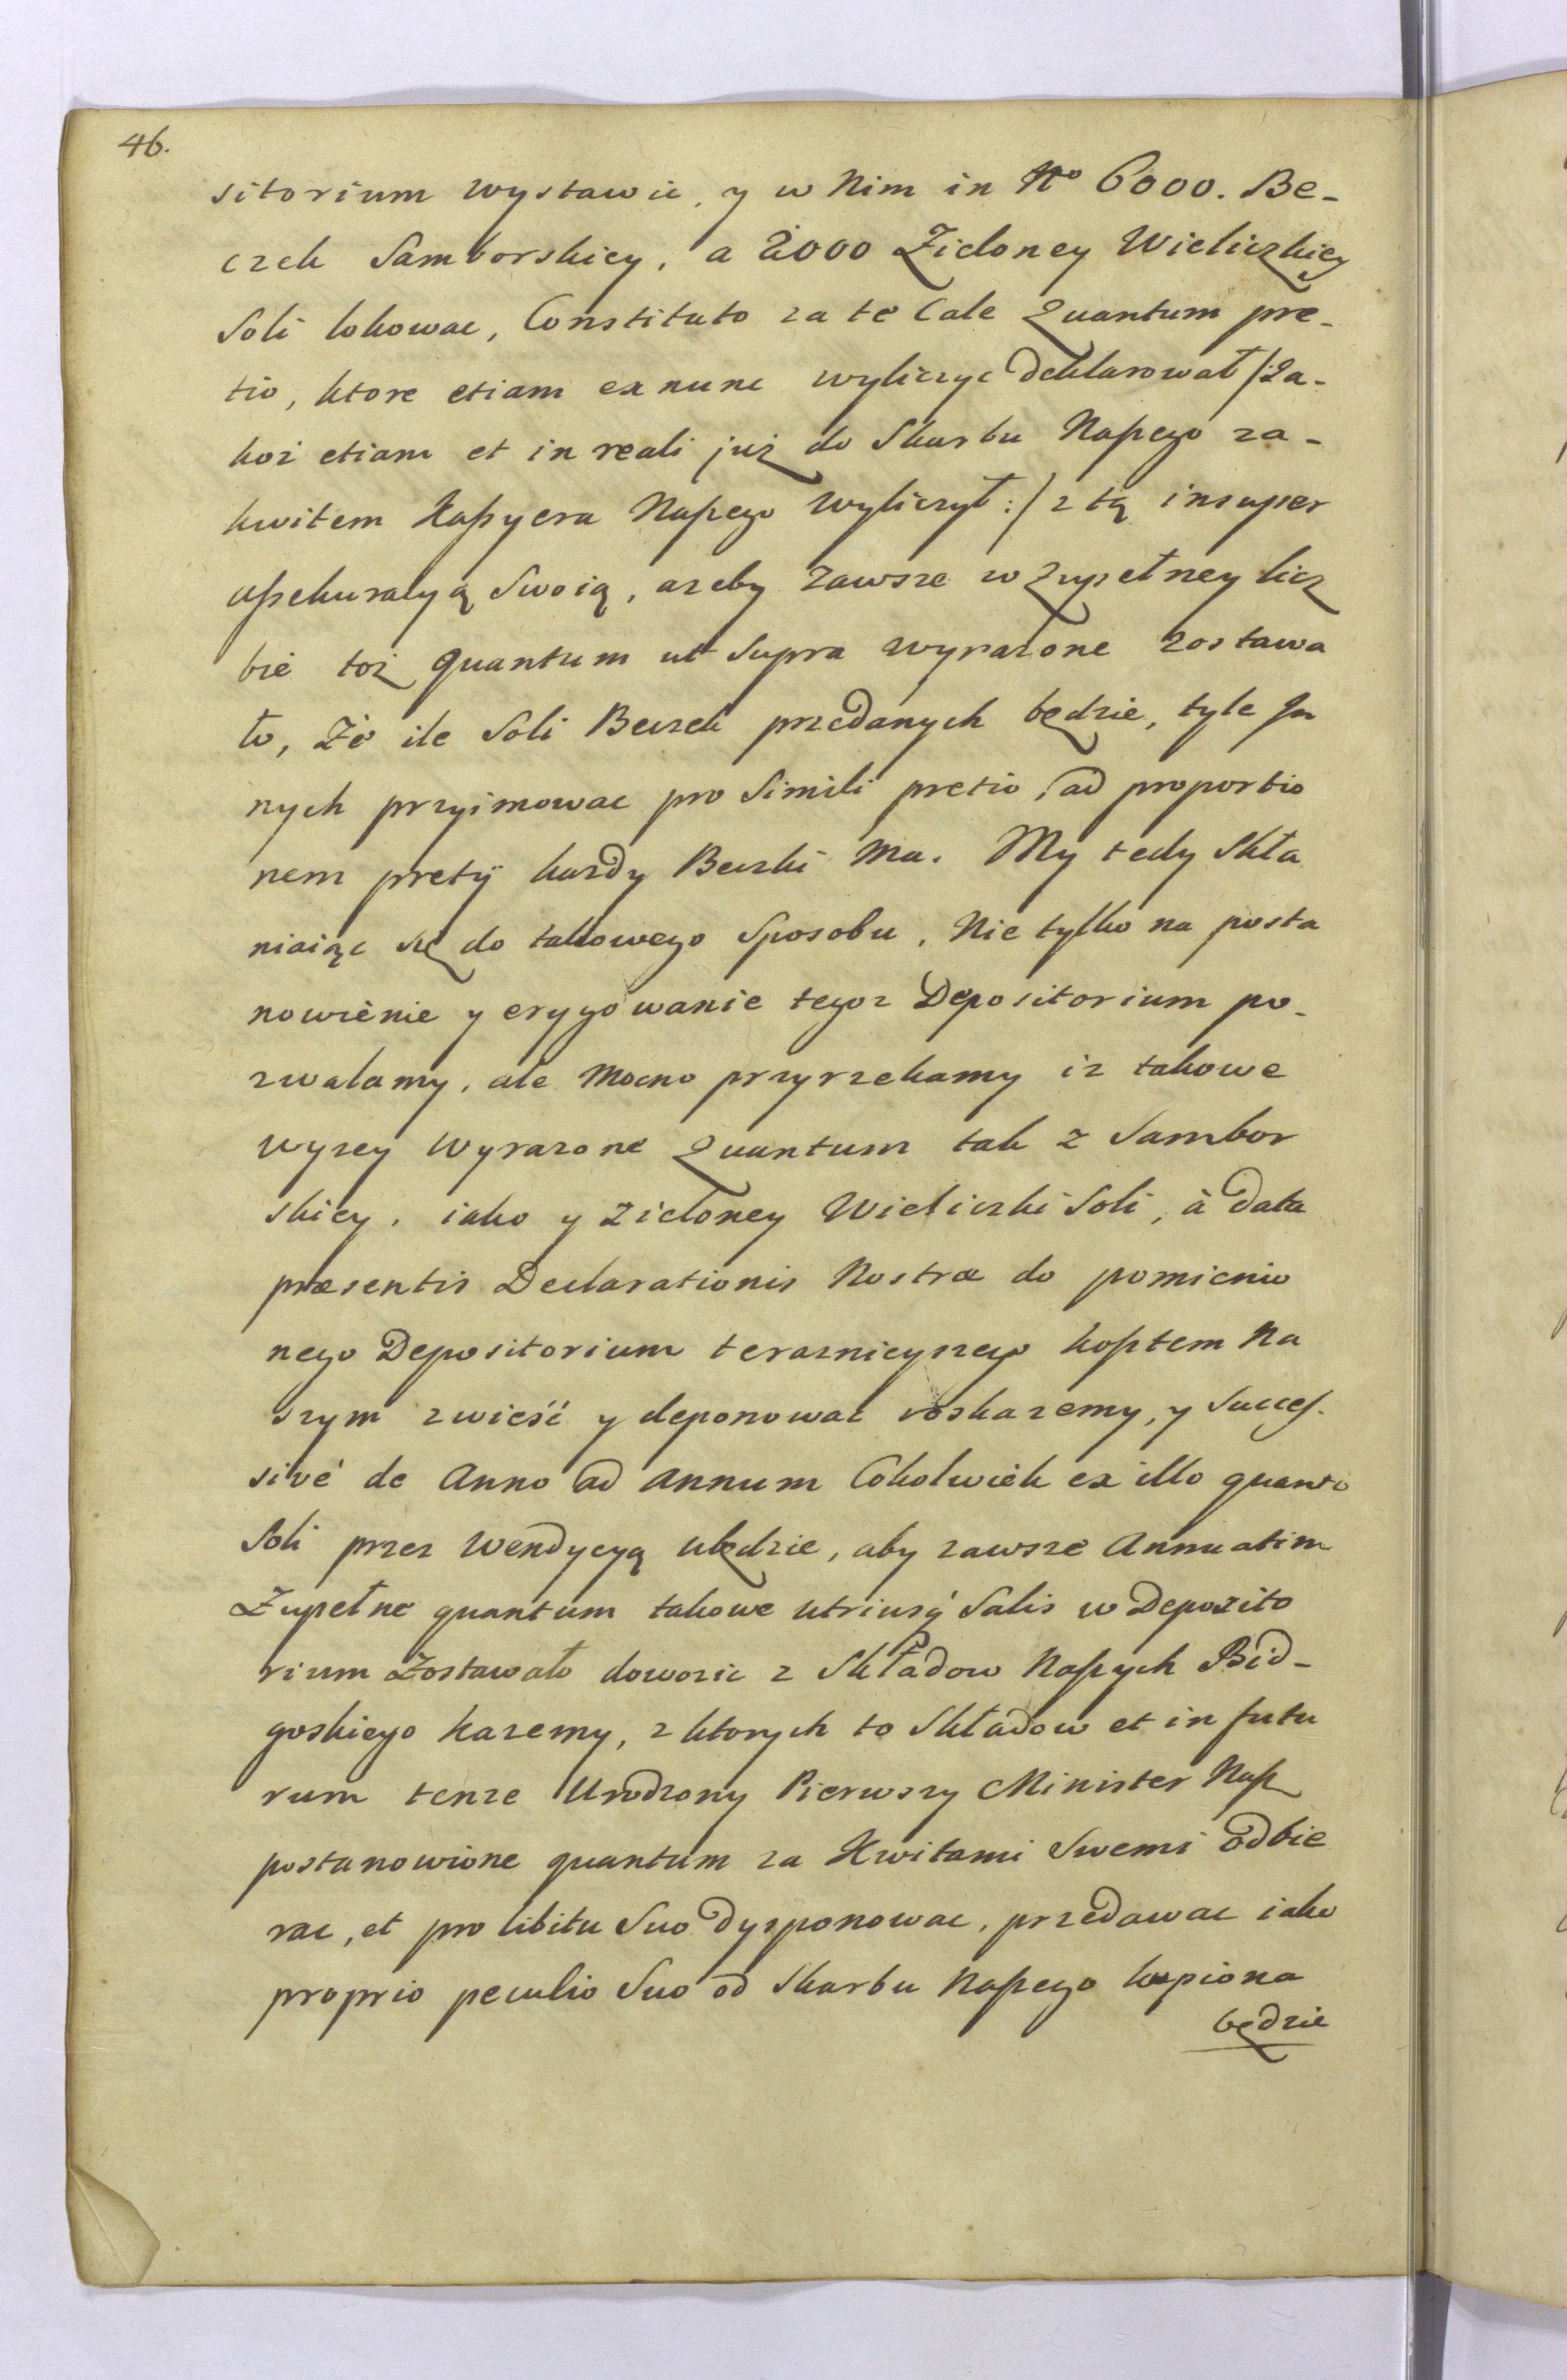 46.
sitorium wystawic, y w Nim in Nº 6000. Be-
czek Samborskiey, a 2000 Zieloney Wieliczkiey
Soli lokowac, Constituto za te Cale Quantum pre-
tio, ktore etiam ex nunc wyliczyc deklarował /:Ja-
koż etiam et in reali już do Skarbu Naszego za-
kwitem Kaßyera Naszego wyliczył:/ z tą insuper
aßekuracyą Swoią, azeby zawsze w zupełney licz
bie toż quantum ut Supra wyrazone zostawa
ło, Że ile Soli Beczek przedanych będzie, tyle In
nych przyimowac pro Simili pretio, ad proportio
nem pretij kazdy Beczki Ma. My tedy Skła
niaiąc się do takowego Sposobu, Nie tylko na posta
nowienie y erygowanie tegoz Depositorium po-
zwalamy, ale Mocno przyrzekamy iz takowe
wyzey Wyrazone Quantum tak z Sambor
skiey, iako y Zieloney Wieliczki Soli, à data
præsentis Declarationis Nostræ do pomienio
nego Depositorium teraznieyszego kosztem Na
szym zwieść y deponowac roskazemy, y Succes-
sivé de Anno ad Annum Cokolwiek ex illo quanto
Soli przez Wendycyą ubędzie, aby zawsze Annuatim
Zupełne quantum takowe utriusq́ Salis w Deposito
rium Zostawało dowozic z Składow Naszych Bid-
goskiego kazemy, z ktorych to Składow et in futu
rum tenze Urodzony Pierwszy Minister Nasz
postanowione quantum za Kwitami Swemi odbie
rac, et pro libitu Suo dysponowac, przedawac iako
proprio peculio Suo od Skarbu Naszego kupiona
będzie